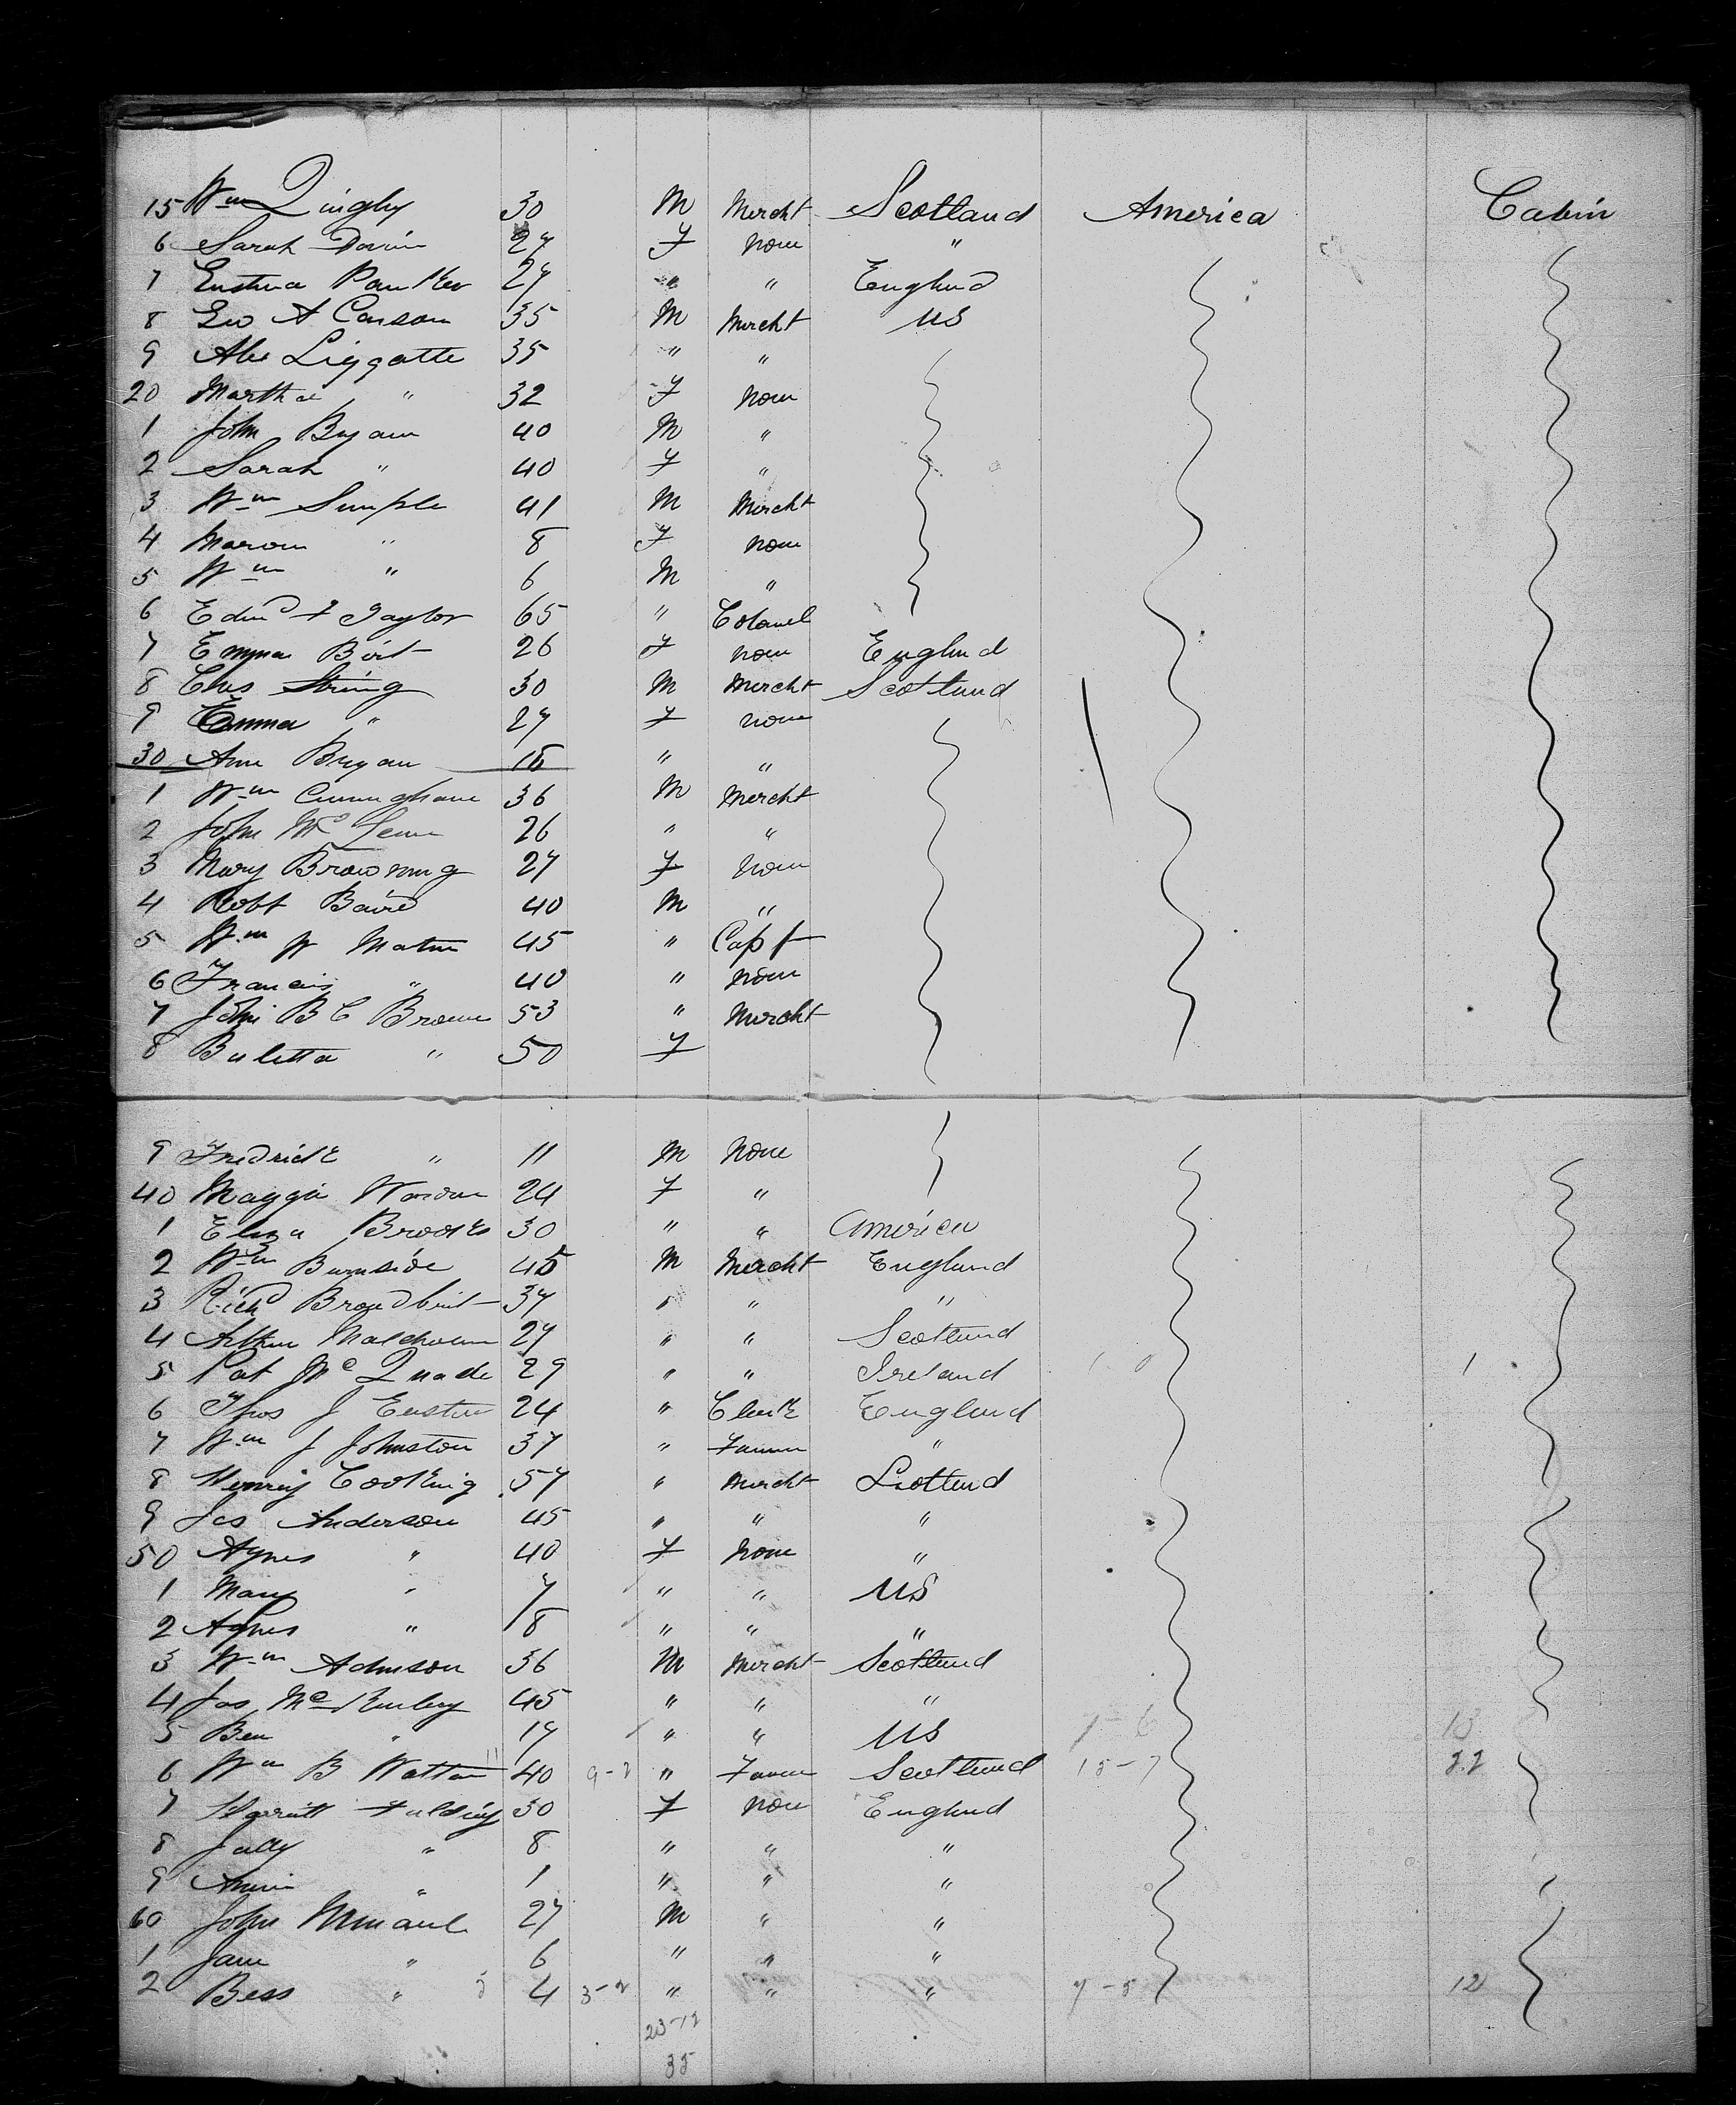 15 Wm Quigley 30 M Mercht Scotland America Cabin
6 Sarah 27 F None "
7 27 " " England
8 Geo A Carson 35 M Mercht US
9 Alex Liggatte 35 " "
20 Martha " 32 F None
1 John Bryan 40 M "
2 Sarah " 40 F "
3 Wm Semple 41 M Mercht
4 Marion " 8 F None
5 Wm " 6 M "
6 Edwd F Taylor 65 " Colonel
7 Emma Birt 26 F None England
8 Chas String 30 M Mercht Scotland
9 Emma " 27 F None
30 Ann Bryan 15 " "
1 Wm Cunningham 36 M Mercht
2 John Mc 26 " "
3 Mary Browning 27 F None
4 Robt Baird 40 M "
5 Wm W 45 " Capt
6 Francis " 40 " None
7 John B C Brown 53 " Mercht
8 " 50 F
9 Fredrick " 11 M None
40 Maggie 24 F "
1 Eliza Brooks 30 " " America
2 Wm Burnside 45 M Mercht England
3 Richd Broadbent 37 " " "
4 Arthur 27 " " Scotland
5 Pat McQuade 29 " " Ireland 1
6 Thos J 24 " Clerk England
7 Wm J Johnston 37 " Farmer "
8 Henry Cooking 57 " Mercht Scotland
9 Jas Anderson 45 " " "
50 Agnes " 40 F None "
1 Mary " 7 " " US
2 Agnes " 8 " " "
3 Wm Adamson 36 M Mercht Scotland
4 Jas Mc 45 " " "
5 Ben " 17 " " US 7-6 13
6 Wm B Watton 40 9-2 " Farmer Scotland 15-7 22
7 Harriett 30 F None England
8 " 8 " " "
9 Annie " 1 " " "
60 John 27 M " "
1 Jane " 6 " " "
2 Bess " 4 3-2 " " " 7-5 12
23-12
35